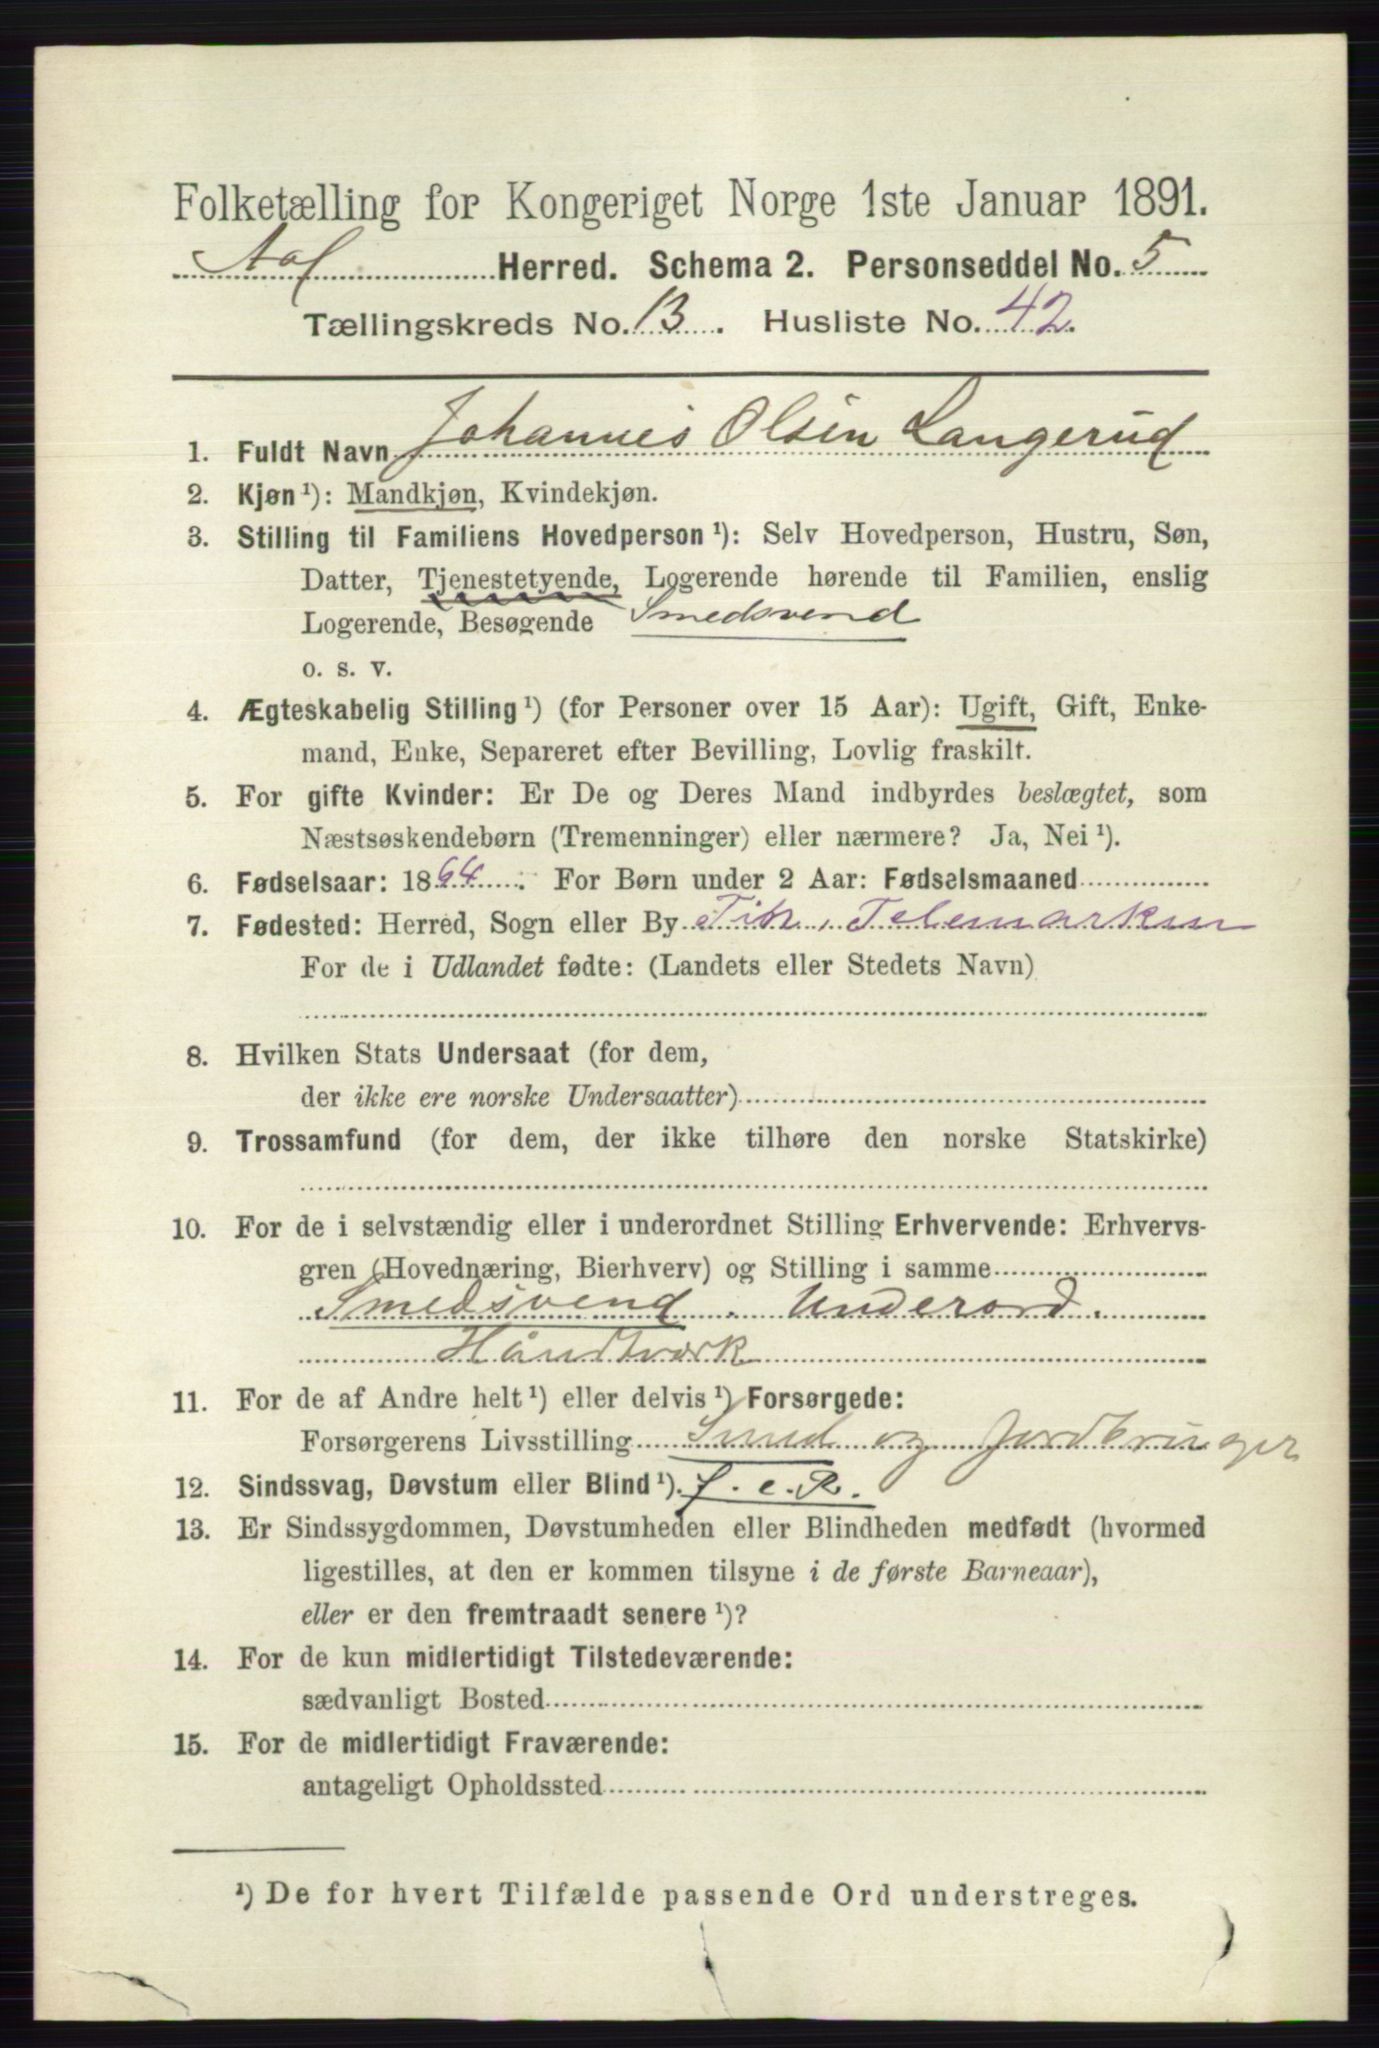 Folketælling for Kongeriget Norge 1ste Januar 1891.
Aal Herred. Schema 2. Personseddel No. 5
Tællingskreds No. 13. Husliste No. 42.
1. Fuldt Navn Johannes Olsen Langerud
2. Kjøn¹): Mandkjøn, Kvindekjøn.
3. Stilling til Familiens Hovedperson¹): Selv Hovedperson, Hustru, Søn,
Datter, Tjenestetyende, Logerende hørende til Familien, enslig
Logerende, Besøgende Smedsvend
o. s. v.
4. Ægteskabelig Stilling¹) (for Personer over 15 Aar): Ugift, Gift, Enke-
mand, Enke, Separeret efter Bevilling, Lovlig fraskilt.
5. For gifte Kvinder: Er De og Deres Mand indbyrdes beslægtet, som
Næstsøskendebørn (Tremenninger) eller nærmere? Ja, Nei¹).
6. Fødselsaar: 1864. For Børn under 2 Aar: Fødselsmaaned
7. Fødested: Herred, Sogn eller By Tin, Telemarken
For de i Udlandet fødte: (Landets eller Stedets Navn)
8. Hvilken Stats Undersaat (for dem,
der ikke ere norske Undersaatter)
9. Trossamfund (for dem, der ikke tilhøre den norske Statskirke)
10. For de i selvstændig eller i underordnet Stilling Erhvervende: Erhvervs-
gren (Hovednæring, Bierhverv) og Stilling i samme
Smedsvend. Underord.
Håndtverk
11. For de af Andre helt¹) eller delvis¹) Forsørgede:
Forsørgerens Livsstilling Smed og Jordbruger
12. Sindssvag, Døvstum eller Blind¹).
13. Er Sindssygdommen, Døvstumheden eller Blindheden medfødt (hvormed
ligestilles, at den er kommen tilsyne i de første Barneaar),
eller er den fremtraadt senere¹)?
14. For de kun midlertidigt Tilstedeværende:
sædvanligt Bosted
15. For de midlertidigt Fraværende:
antageligt Opholdssted
¹) De for hvert Tilfælde passende Ord understreges.